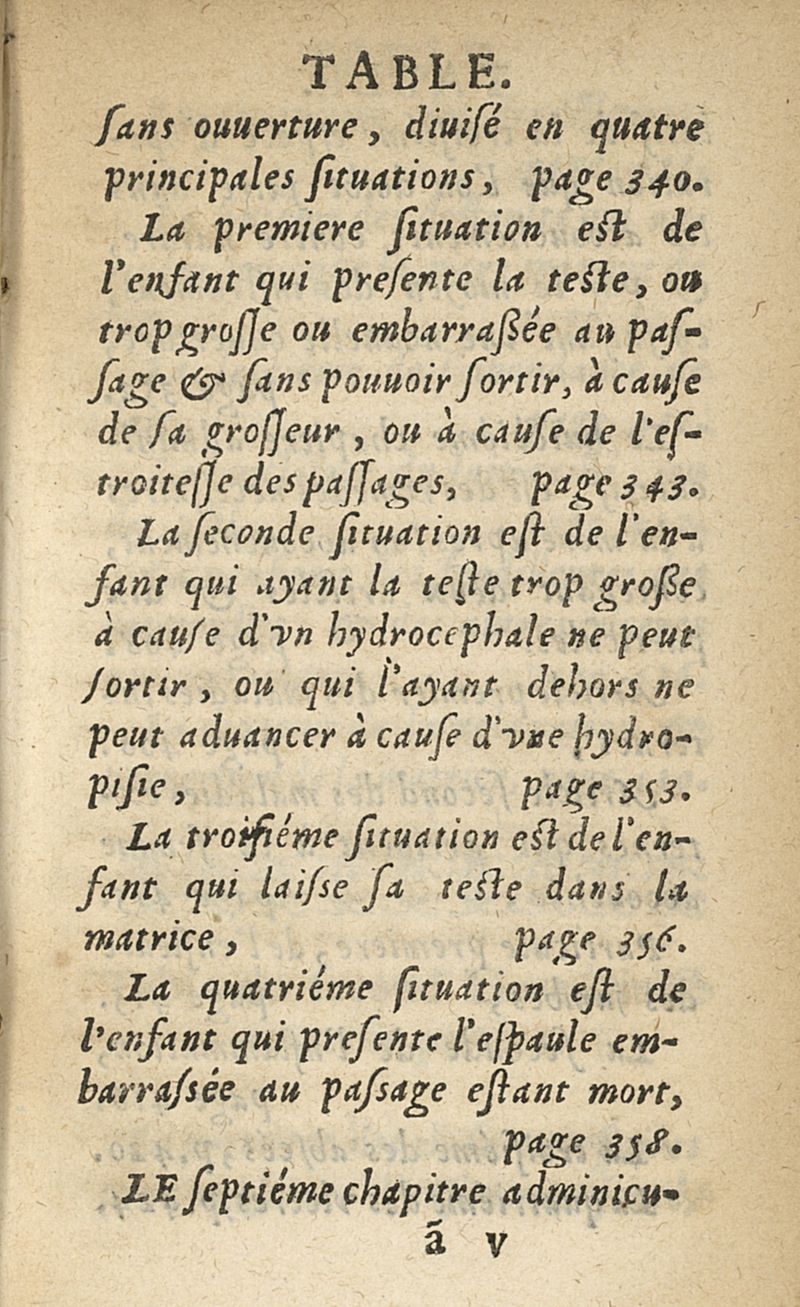 TABLE.
ſans ouuerture, diuiſé en quatre
principales ſituations, page 340.
La premiere ſituation eſt de
l'enfant qui preſente la teſte, ou
trop groſſe ou embarraßée au paſ-
ſage & ſans pouuoir ſortir, à cauſe
de ſa groſſeur, ou à cauſe de l'eſ-
troiteſſe des paſſages, page 343.
La ſeconde ſituation eſt de l'en-
fant qui ayant la teſte trop große
à cauſe d'vn hydrocephale ne peut
ſortir, ou qui l'ayant dehors ne
peut aduancer à cauſe d'vne hydro-
piſie, page 353.
La troiſiéme ſituation eſt de l'en-
fant qui laiſse ſa teſte dans la
matrice, page 356.
La quatriéme ſituation eſt de
l'enfant qui preſente l'eſpaule em-
barraſsée au paſsage eſtant mort,
page 358.
LE ſeptiéme chapitre adminicu-
ã v